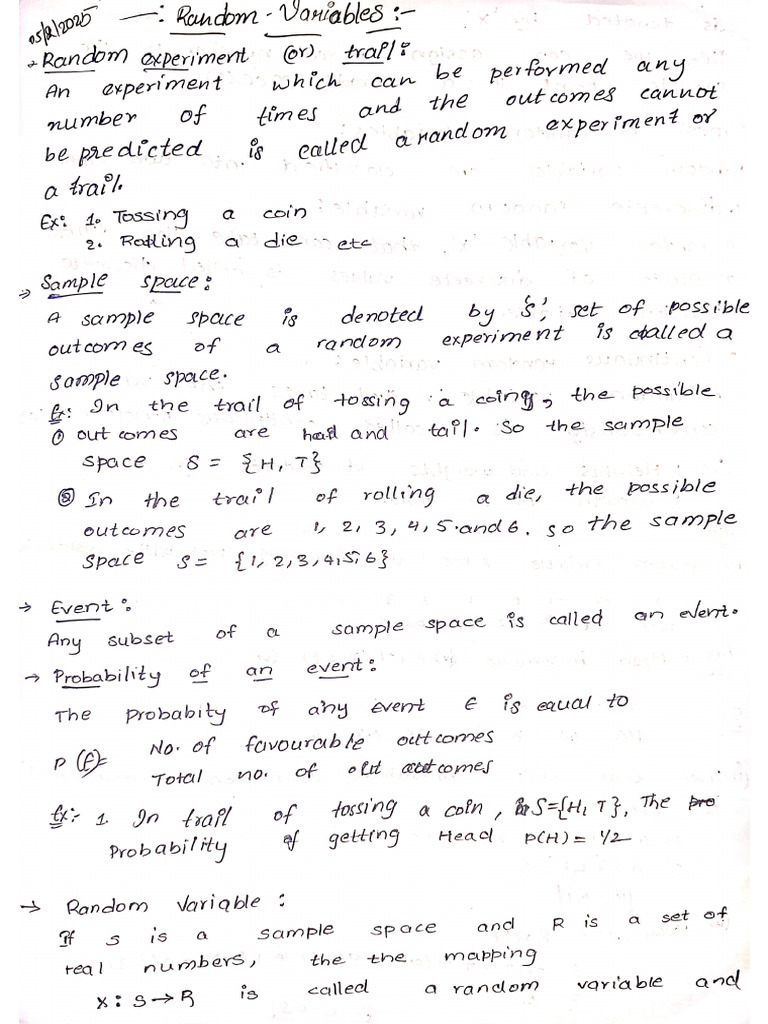 05/2/2025 —: Random - Variables :-
→ Random experiment (or) trail:
An experiment which can be performed any
number of times and the outcomes cannot
be predicted is called a random experiment or
a trail.
Ex: 1. Tossing a coin
2. Rolling a die etc
⇒ Sample space:
A sample space is denoted by 'S', set of possible
outcomes of a random experiment is called a
sample space.
Ex: In the trail of tossing a coin, the possible
① out comes are head and tail. So the sample
space S = {H, T}
② In the trail of rolling a die, the possible
outcomes are 1, 2, 3, 4, 5 and 6. so the sample
space S = {1, 2, 3, 4, 5, 6}
→ Event:
Any subset of a sample space is called an event.
→ Probability of an event:
The probabity of any event E is equal to
P(E)= No. of favourable outcomes
Total no. of outcomes
Ex:- 1. In trail of tossing a coin, S={H, T}, The
Probability of getting Head P(H) = 1/2
→ Random variable:
If S is a sample space and R is a set of
real numbers, the the mapping
X: S→R is called a random variable and